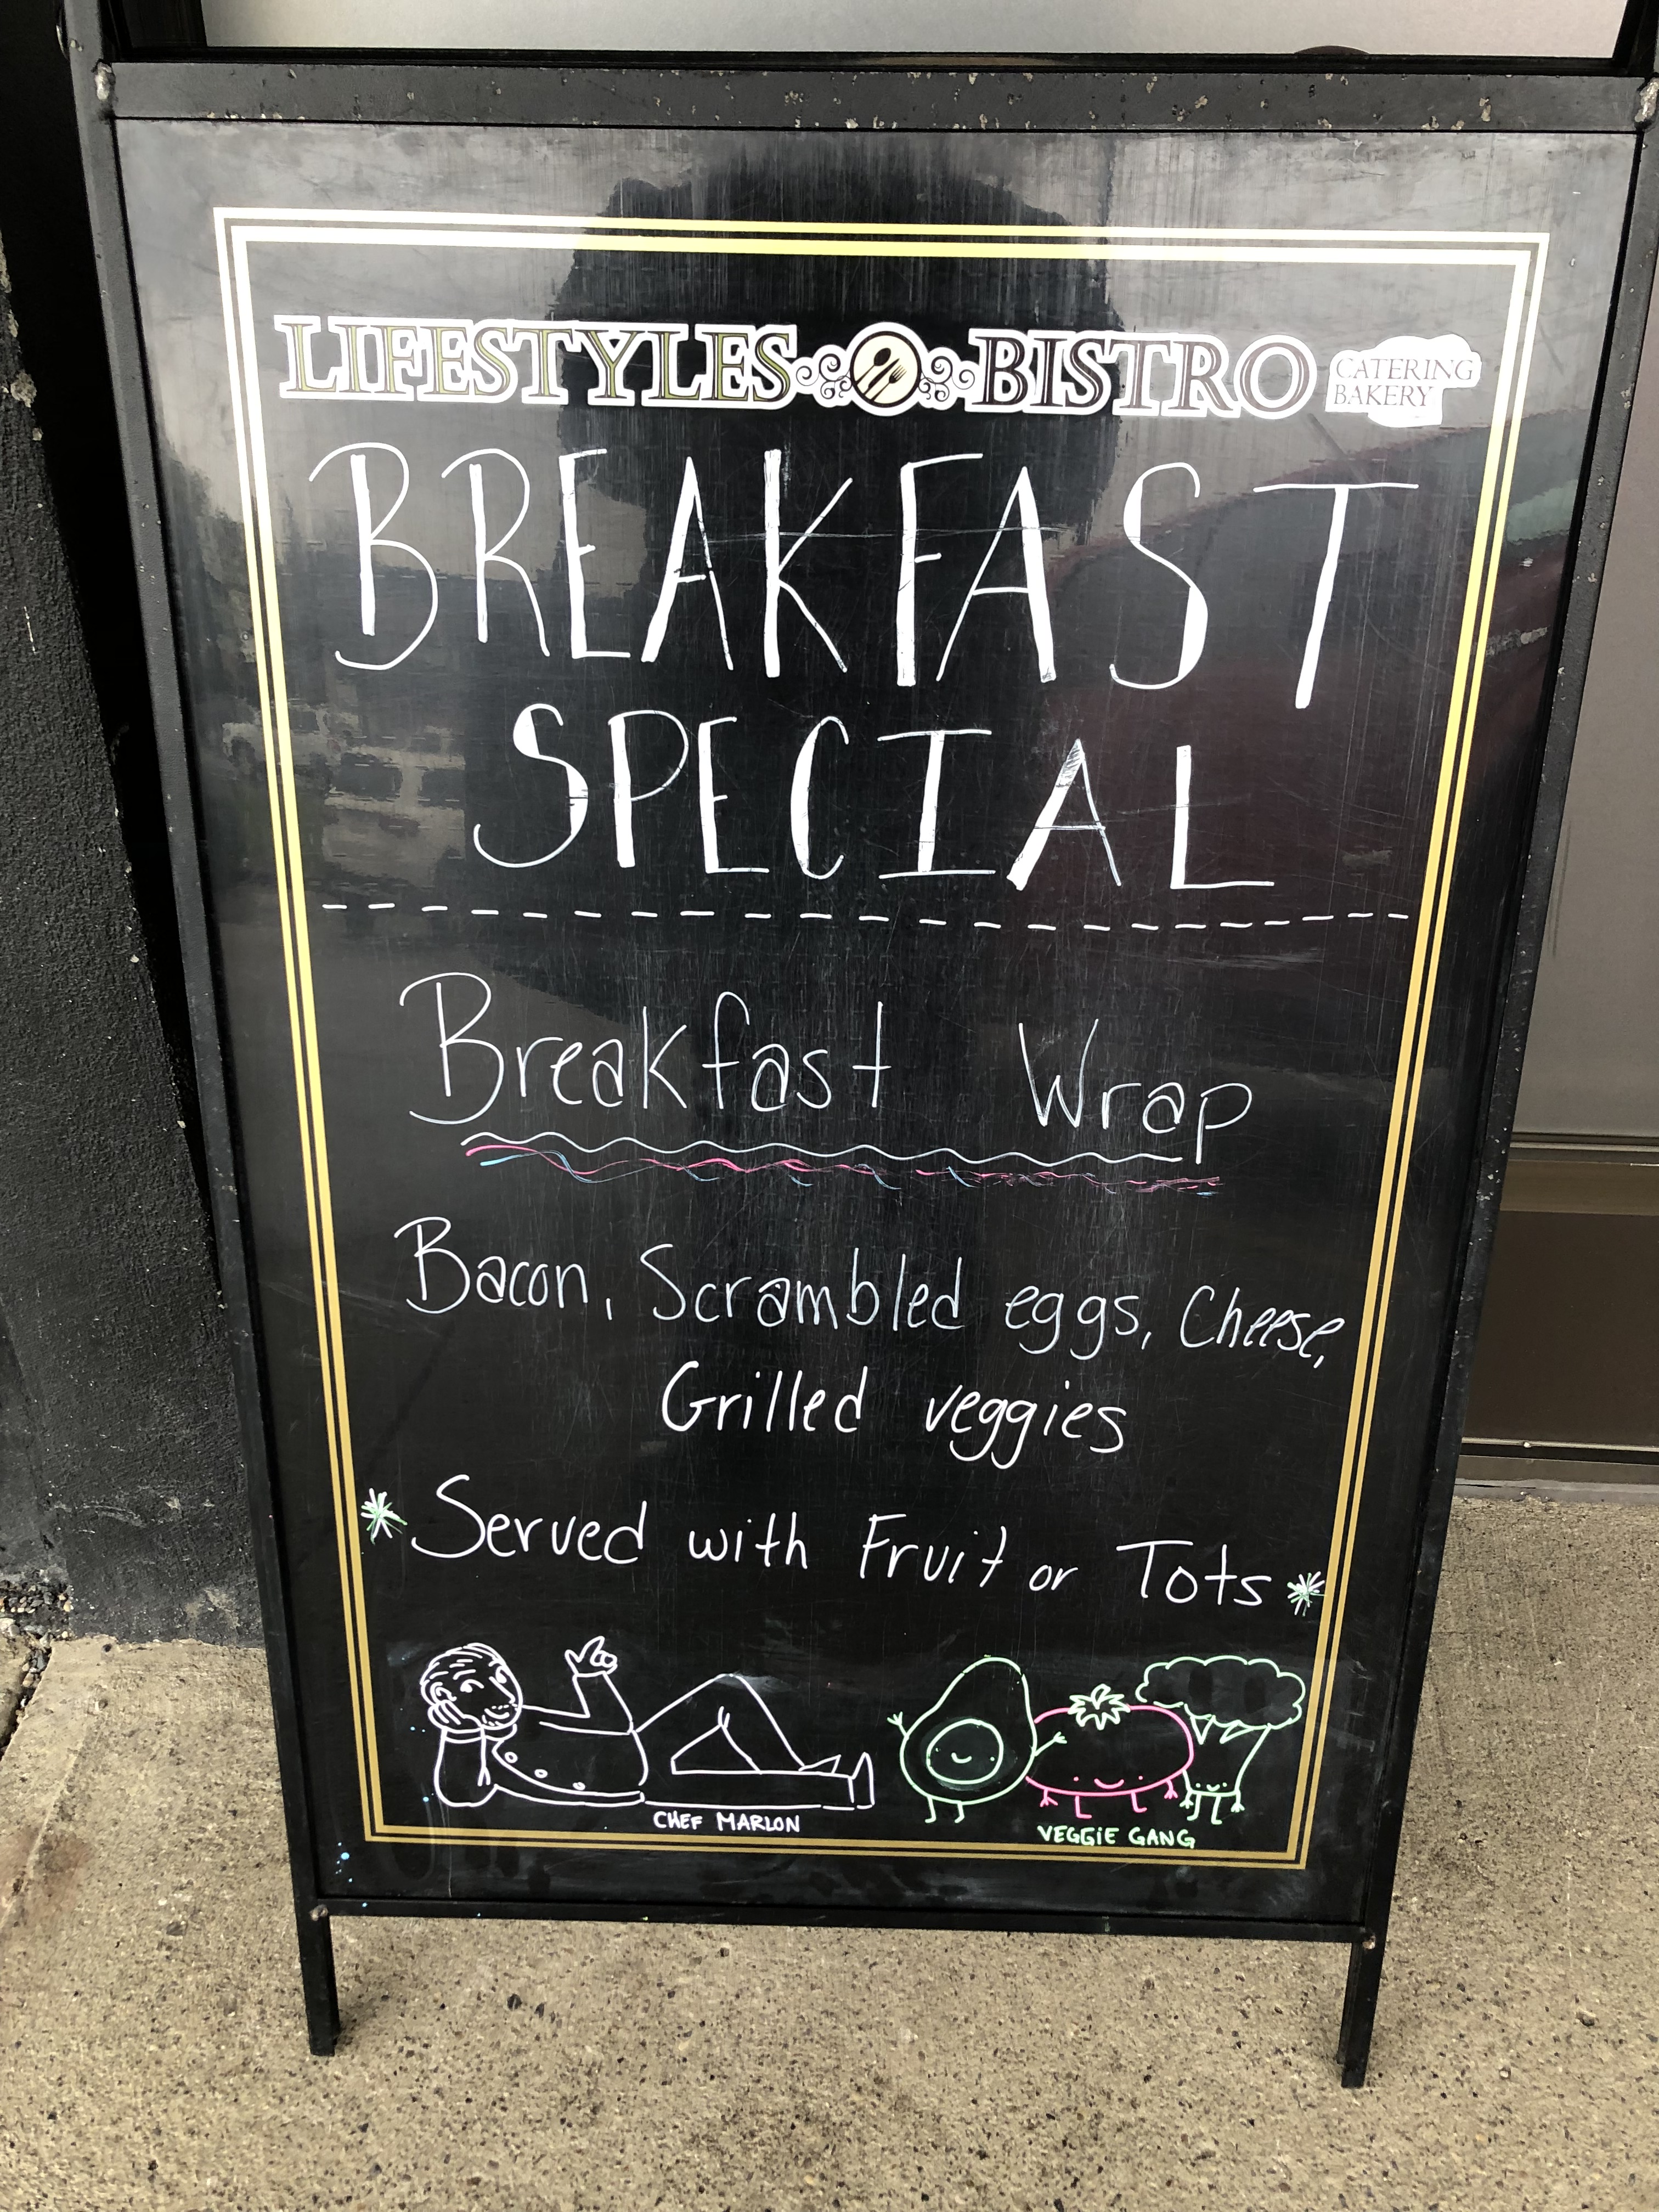 LIFESTYLES BISTRO CATERING BAKERY
BREAKFAST
SPECIAL
Breakfast Wrap
Bacon, Scrambled eggs, Cheese,
Grilled veggies
* Served with Fruit or Tots *
CHEF MARLON
VEGGIE GANG